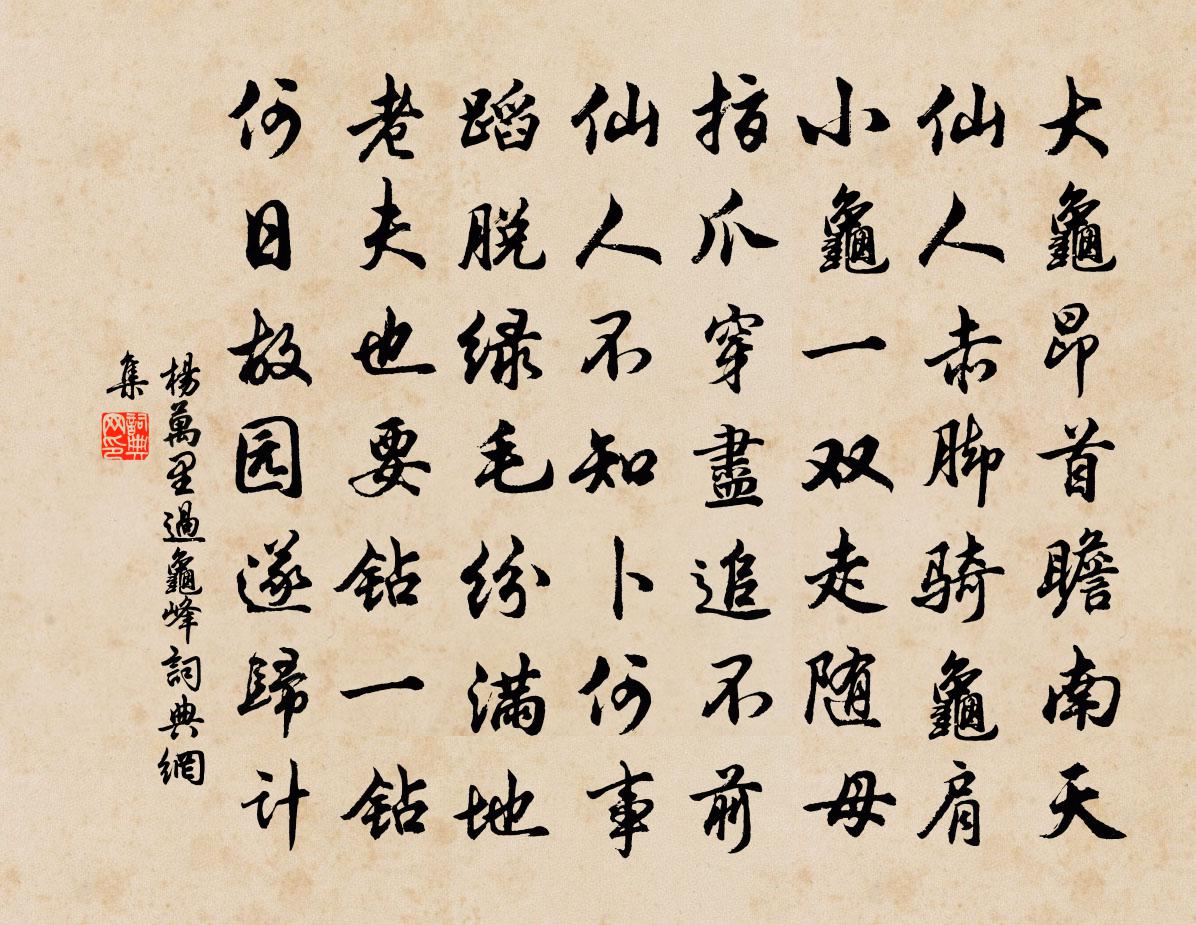 大龜昂首瞻南天
仙人赤脚骑龜肩
小龜一双走随母
指爪穿盡追不前
仙人不知卜何事
蹈脱绿毛纷满地
老夫也要钻一钻
何日故园遂歸计
楊萬里過龜峰詞典網
集
詞典网印